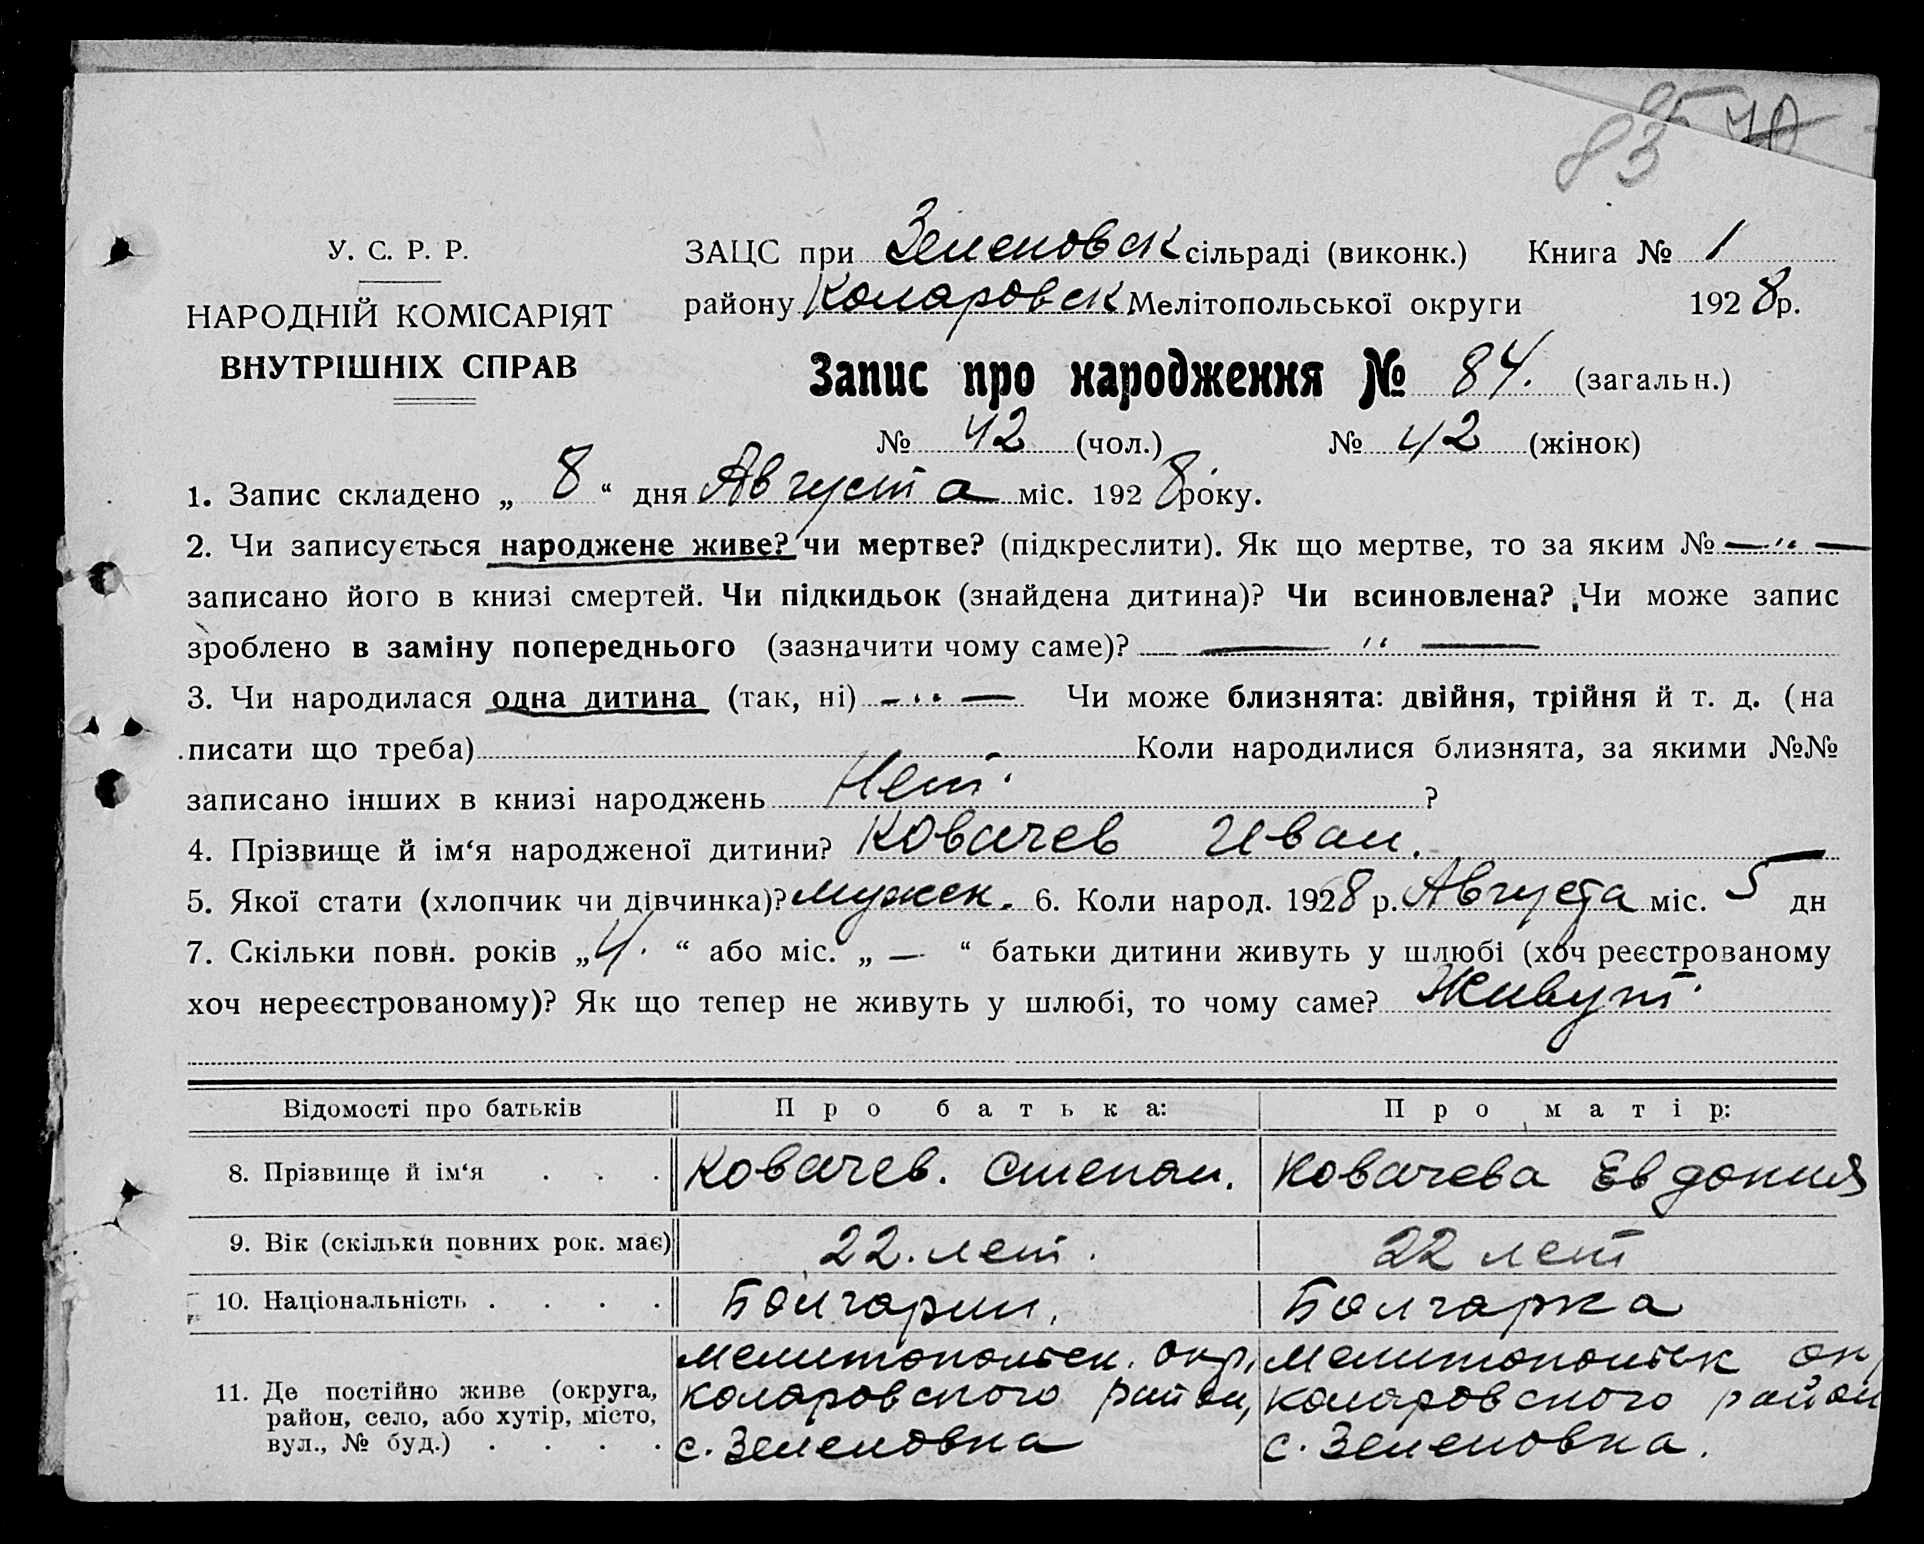 85 40
83
У. С. Р. Р.
НАРОДНІЙ КОМІСАРІЯТ
ВНУТРІШНІХ СПРАВ
ЗАЦС при Зеленовск сільраді (виконк.) Книга № 1
району Коларовск Мелітопольської округи 1928 р.
Запис про народження № 84. (загальн.)
№ 42 (чол.) № 42 (жінок)
1. Запис складено „ 8 “ дня Августа міс. 1928 року.
2. Чи записується народжене живе? чи мертве? (підкреслити). Як що мертве, то за яким № — " —
записано його в книзі смертей. Чи підкидьок (знайдена дитина)? Чи всиновлена? Чи може запис
зроблено в заміну попереднього (зазначити чому саме)? — " —
3. Чи народилася одна дитина (так, ні) — " — Чи може близнята: двійня, трійня й т. д. (на
писати що треба) Коли народилися близнята, за якими №№
записано інших в книзі народжень Нет. ?
4. Прізвище й ім‘я народженої дитини? Ковачев Иван.
5. Якої стати (хлопчик чи дівчинка)? мужск. 6. Коли народ. 1928 р. Августа міс. 5 дн
7. Скільки повн. років „ 4. “ або міс. „ — “ батьки дитини живуть у шлюбі (хоч реєстрованому
хоч нереєстрованому)? Як що тепер не живуть у шлюбі, то чому саме? Живут.
Відомості про батьків Про батька: Про матір:
8. Прізвище й ім‘я . . . Ковачев. Степан. Ковачева Евдокия
9. Вік (скільки повних рок. має) 22. лет. 22 лет
10. Національність . . . . Болгарин. Болгарка
11. Де постійно живе (округа, район, село, або хутір, місто, вул., № буд.) . . . .
Мелитопольск. окр,
Коларовского район,
с. Зеленовка
Мелитопольск ок
Коларовского район
с. Зеленовка.